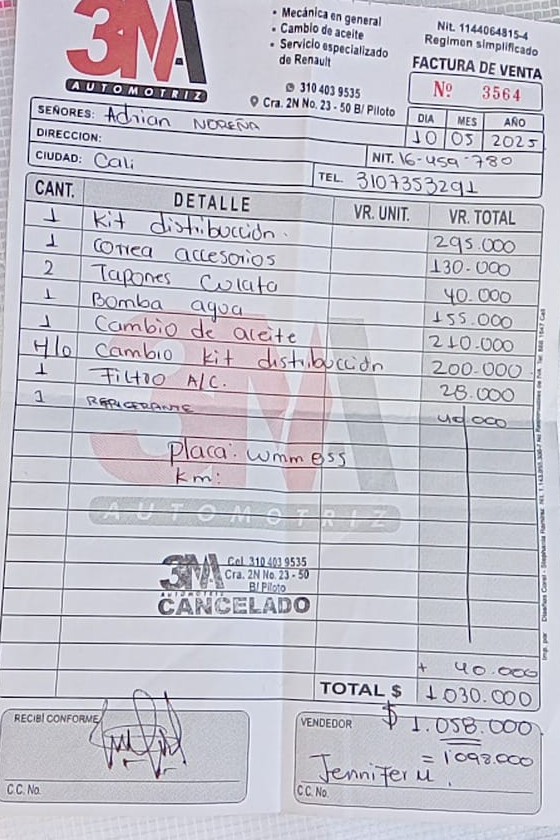 3MA
AUTOMOTRIZ
• Mecánica en general
• Cambio de aceite
• Servicio especializado
de Renault
310 403 9535
Cra. 2N No. 23 - 50 B/ Piloto
Nit. 1144064815-4
Regimen simplificado
FACTURA DE VENTA
Nº 3564
DIA MES AÑO
10 05 2025
SEÑORES: Adrian NOREÑA
DIRECCION:
NIT. 16-459-780
CIUDAD: Cali
TEL. 3107353291
CANT. DETALLE VR. UNIT. VR. TOTAL
1 Kit distribucción. 295.000
1 Correa accesorios 130.000
2 Tapones Culata 40.000
1 Bomba agua 155.000
1 Cambio de aceite 210.000
H/o Cambio kit distribucción 200.000
1 Filtro A/C. 28.000
1 REFRIGERANTE 40.000
Placa: wmm 855
km:
3MA
AUTOMOTRIZ
3MA
AUTOMOTRIZ
Cel. 310 403 9535
Cra. 2N No. 23 - 50
B/ Piloto
CANCELADO
+ 40.000
TOTAL $ 1030.000
RECIBÍ CONFORME
C.C. No.
VENDEDOR
$ 1.058.000
= 1'098.000
Jennifer M.
C.C. No.